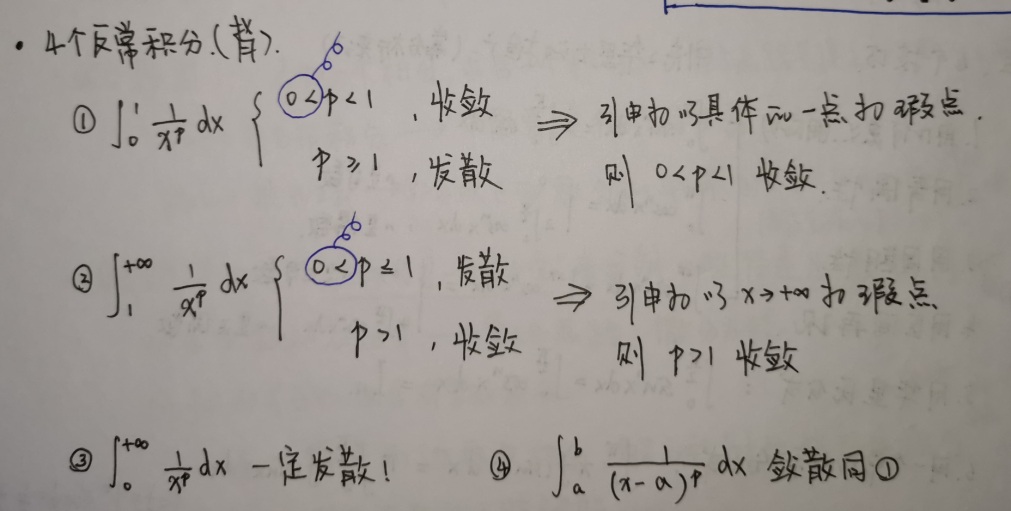 · 4个反常积分.(背).
① ∫₀¹ 1/xᵖ dx { 0<p<1 , 收敛 ⇒ 引申为:以具体的一点为瑕点.
p≥1 , 发散 则 0<p<1 收敛.
② ∫₁^{+∞} 1/xᵖ dx { 0<p≤1 , 发散 ⇒ 引申为:以 x→+∞ 为瑕点
p>1 , 收敛 则 p>1 收敛
③ ∫₀^{+∞} 1/xᵖ dx 一定发散! ④ ∫ₐᵇ 1/(x-a)ᵖ dx 敛散同①